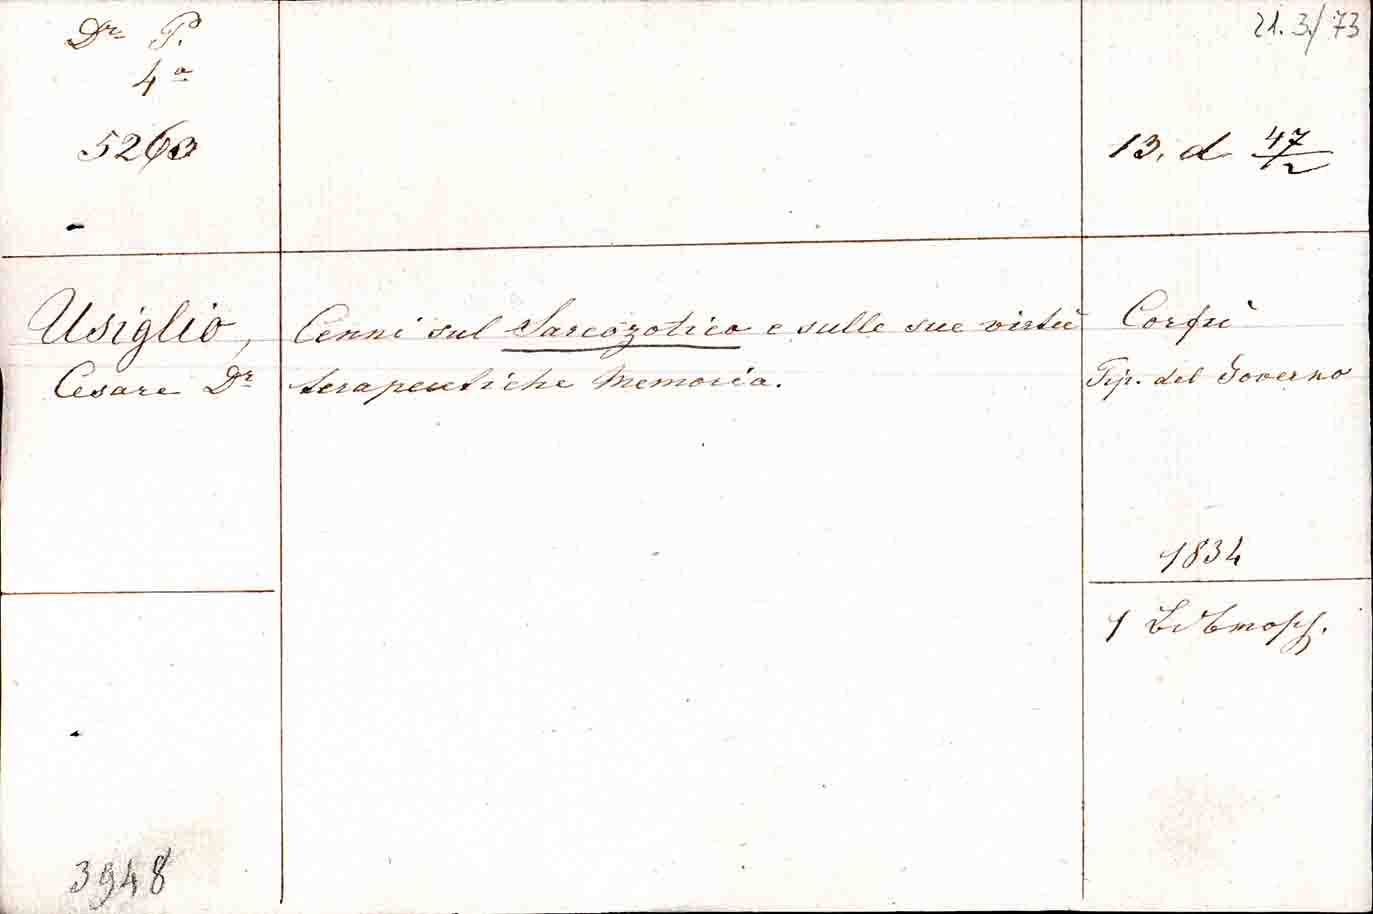 Dr P.
4a
5260
21.3./73
13. d 47/2
Usiglio,
Cesare Dr
Cenni sul Sarcozotico e sulle sue virtù
terapeutiche Memoria.
Corfù
Tip. del Governo
1834
1
3948